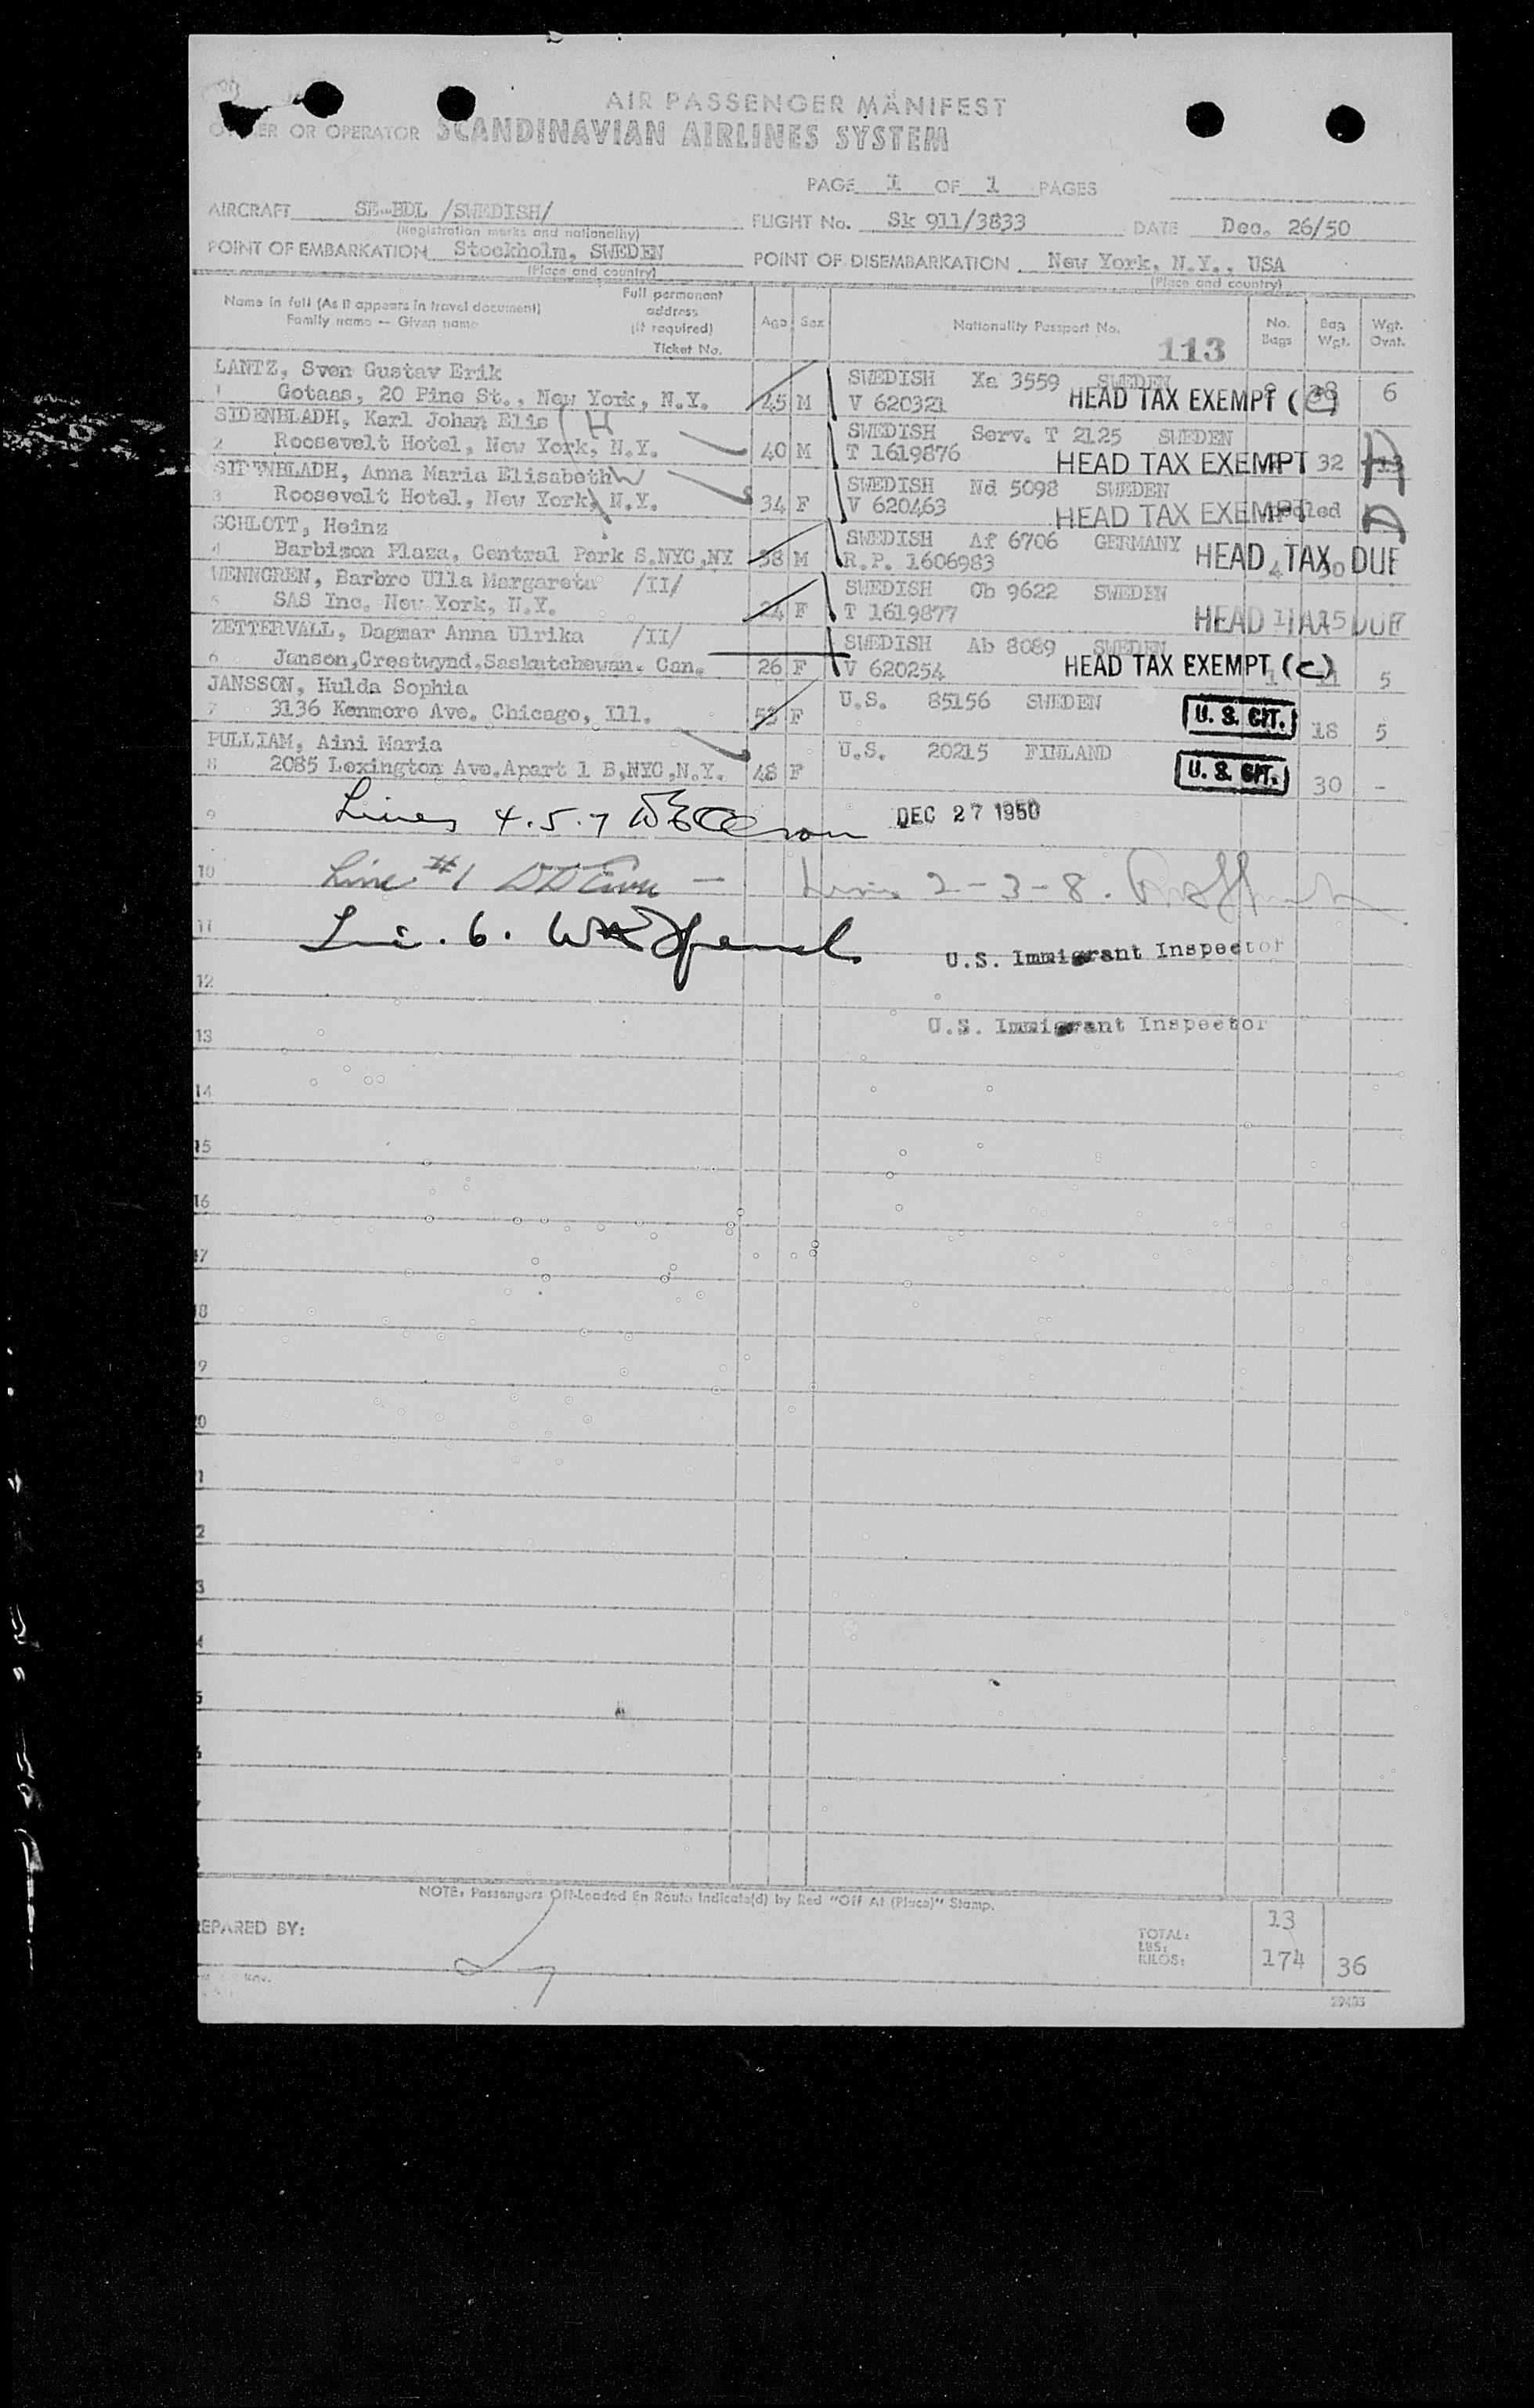 AIR PASSENGER MANIFEST
OWNER OR OPERATOR SCANDINAVIAN AIRLINES SYSTEM
PAGE 1 OF 1 PAGES
AIRCRAFT SE-BDL /SWEDISH/ FLIGHT No. Sk 911/3833 DATE Dec. 26/50
(Registration marks and nationality)
POINT OF EMBARKATION Stockholm, SWEDEN POINT OF DISEMBARKATION New York, N.Y., USA
(Place and country) (Place and country)
Name in full (As it appears in travel document) Full permanent
Family name — Given name address
(if required) Age Sex Nationality Passport No. No. Bags Bag Wgt. Wgt. Ovnt.
Ticket No. 113
LANTZ, Sven Gustav Erik SWEDISH Xa 3559 SWEDEN
1 Gotaas, 20 Pine St., New York, N.Y. 45 M V 620321 HEAD TAX EXEMPT (C) 6
SIDENBLADH, Karl Johan Elis H SWEDISH Serv. T 2125 SWEDEN
2 Roosevelt Hotel, New York, N.Y. 40 M T 1619876 HEAD TAX EXEMPT 32
SIDENBLADH, Anna Maria Elisabeth W SWEDISH Nd 5098 SWEDEN
3 Roosevelt Hotel, New York, N.Y. 34 F V 620463 HEAD TAX EXEMPT pooled
SCHLOTT, Heinz SWEDISH Af 6706 GERMANY
4 Barbizon Plaza, Central Park S.NYC,NY 38 M R.P. 1606983 HEAD TAX DUE 4 30
WENNGREN, Barbro Ulla Margareta /II/ SWEDISH Ob 9622 SWEDEN
5 SAS Inc. New York, N.Y. 24 F T 1619877 HEAD TAX DUE 1 15
ZETTERVALL, Dagmar Anna Ulrika /II/ SWEDISH Ab 8089 SWEDEN
6 Janson,Crestwynd,Saskatchewan. Can. 26 F V 620254 HEAD TAX EXEMPT (C) 1 11 5
JANSSON, Hulda Sophia U.S. 85156 SWEDEN
7 3136 Kenmore Ave. Chicago, Ill. 53 F U.S. CIT. 18 5
PULLIAM, Aini Maria U.S. 20215 FINLAND
8 2085 Lexington Ave.Apart 1 B,NYC,N.Y. 48 F U.S. CIT. 30 -
9 Lines 4.5.7 DEC 27 1950
10 Line #1 Lines 2-3-8.
11 Li. 6.
U.S. Immigrant Inspector
12
U.S. Immigrant Inspector
13
14
15
16
17
18
9
0
1
2
3
4
5
6
NOTE: Passengers Off-Loaded En Route Indicate(d) by Red "Off At (Place)" Stamp.
REPARED BY: TOTAL: 13
LBS:
KILOS: 174 36
Rev.